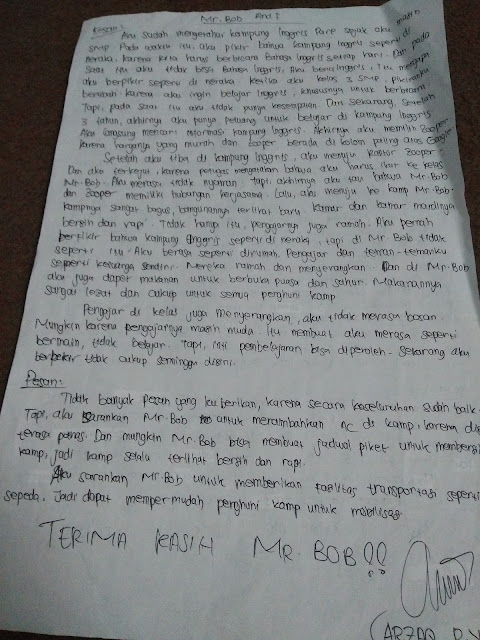 Mr. Bob And I
Kesan :
Aku sudah mengetahui kampung Inggris Pare sejak aku masih
SMP. Pada waktu itu, aku pikir bahwa kampung Inggris seperti di
neraka, karena kita harus berbicara Bahasa Inggris setiap hari. Dan pada
saat itu aku tidak bisa Bahasa Inggris, Aku benci Inggris, itu mengapa
aku berpikir seperti di neraka. Ketika aku kelas 3 SMP, pikiranku
berubah karena aku ingin belajar Inggris, khususnya untuk berbicara.
Tapi, pada saat itu aku tidak punya kesempatan. Dan sekarang, setelah
3 tahun, akhirnya aku punya peluang untuk belajar di kampung Inggris
Aku langsung mencari informasi kampung Inggris. Akhirnya aku memilih Zooper
karena harganya yang murah dan Zooper berada di kolom paling atas Google
Setelah aku tiba di kampung Inggris, aku menuju kantor Zooper.
Dan aku terkejut, karena petugas mengatakan bahwa aku harus ikut ke kelas
Mr. Bob. Aku merasa tidak nyaman. tapi, akhirnya aku tau bahwa Mr. Bob
dan Zooper memiliki hubungan kerjasama. Lalu, aku menuju ke kamp Mr. Bob.
Kampnya sangat bagus, bangunannya terlihat baru. Kamar dan kamar mandinya
bersih dan rapi. Tidak hanya itu, pengajarnya juga ramah. Aku pernah
berfikir bahwa kampung Inggris seperti di neraka, tapi di Mr. Bob tidak
seperti itu. Aku berasa seperti dirumah. Pengajar dan teman-temanku
seperti keluarga sendiri. Mereka ramah dan menyenangkan. Dan di Mr. Bob
aku juga dapat makanan untuk berbuka puasa dan sahur. Makanannya
sangat lezat dan cukup untuk semua penghuni kamp
Pengajar di kelas juga menyenangkan, aku tidak merasa bosan.
Mungkin karena pengajarnya masih muda. Itu membuat aku merasa seperti
bermain, tidak belajar. Tapi, inti pembelajaran bisa diperoleh. Sekarang aku
berpikir tidak cukup seminggu disini.
Pesan:
Tidak banyak pesan yang ku berikan, karena secara keseluruhan sudah baik.
Tapi, aku sarankan Mr. Bob untuk menambahkan AC di kamp, karena di
terasa panas. Dan mungkin Mr. Bob bisa membuat jadwal piket untuk
kamp, jadi kamp selalu terlihat bersih dan rapi.
Aku sarankan Mr. Bob untuk memberikan fasilitas transportasi seperti
sepeda. Jadi dapat mempermudah penghuni kamp untuk mobilisasi
TERIMA KASIH MR. BOB!!